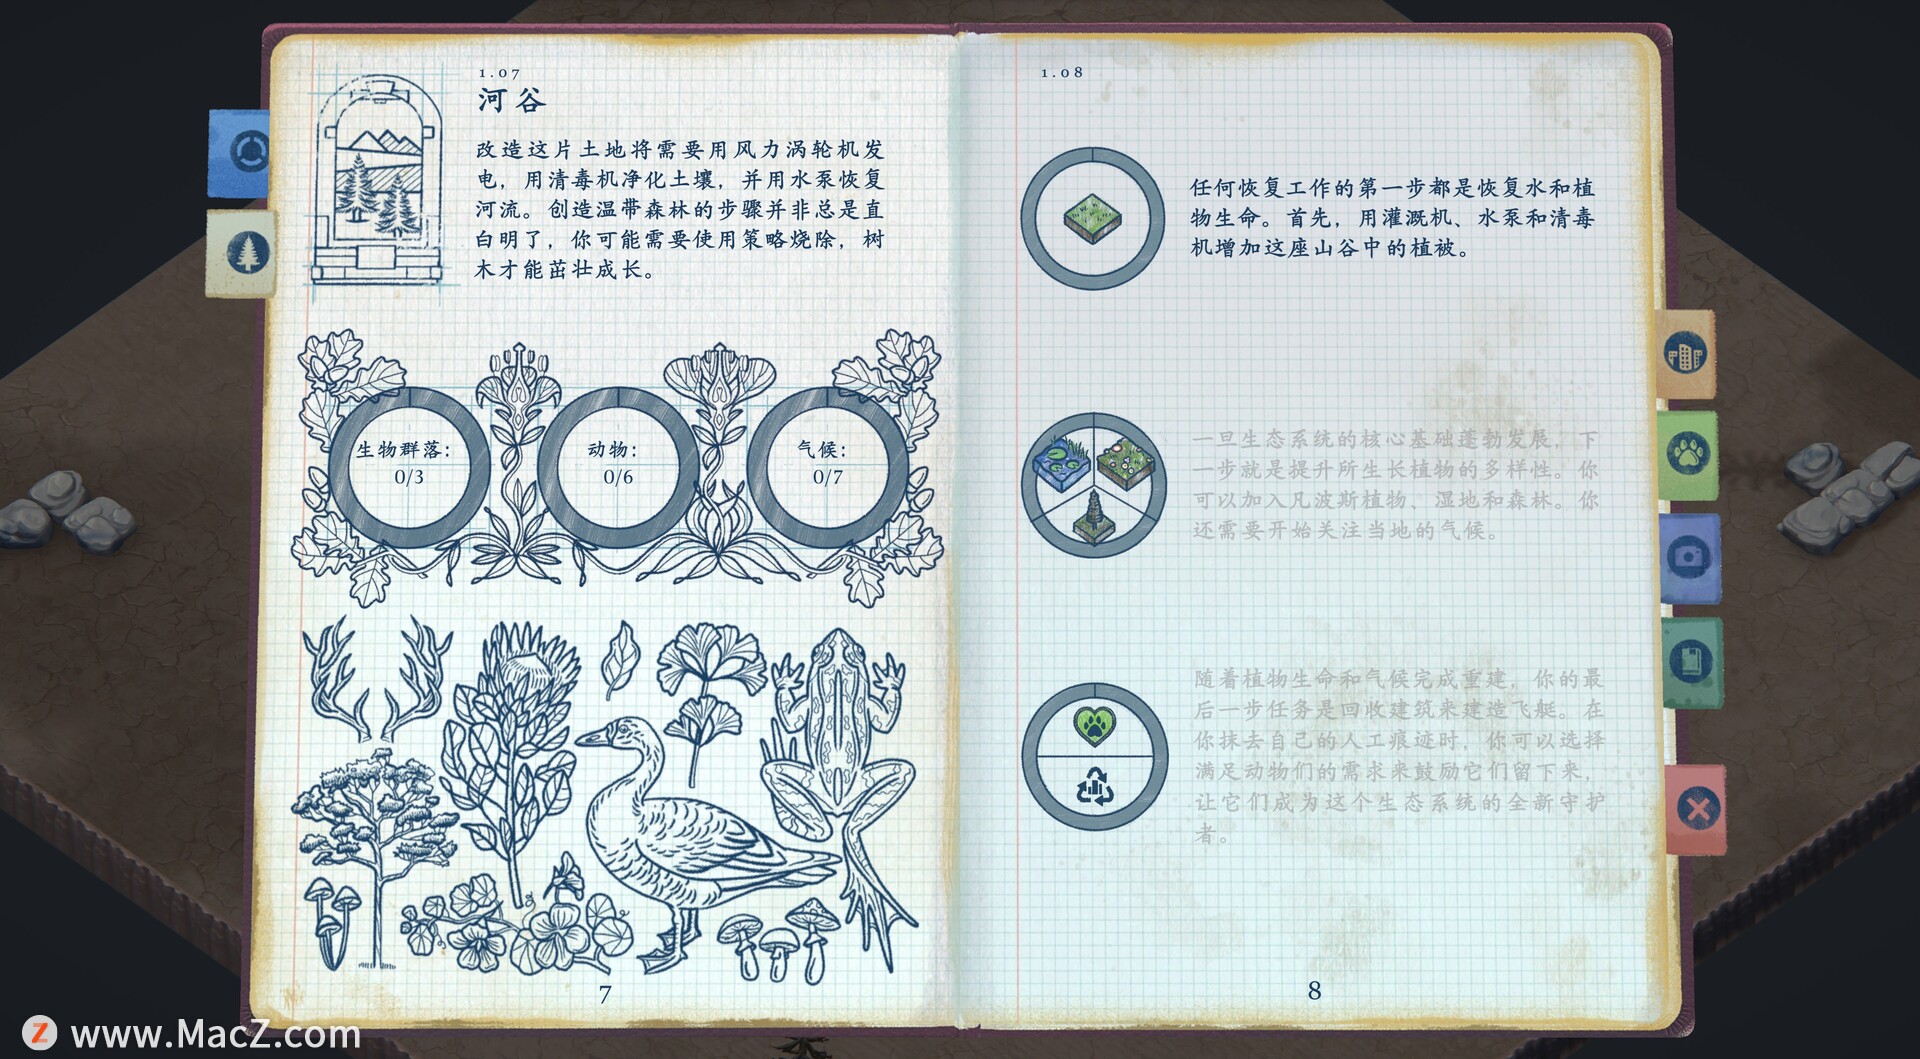 1.07
河谷
改造这片土地将需要用风力涡轮机发
电，用清毒机净化土壤，并用水泵恢复
河流。创造温带森林的步骤并非总是直
白明了，你可能需要使用策略烧除，树
木才能茁壮成长。
生物群落：
0/3
动物：
0/6
气候：
0/7
7
1.08
任何恢复工作的第一步都是恢复水和植
物生命。首先，用灌溉机、水泵和清毒
机增加这座山谷中的植被。
一旦生态系统的核心基础蓬勃发展，下
一步就是提升所生长植物的多样性。你
可以加入凡波斯植物、湿地和森林。你
还需要开始关注当地的气候。
随着植物生命和气候完成重建，你的最
后一步任务是回收建筑来建造飞艇。在
你抹去自己的人工痕迹时，你可以选择
满足动物们的需求来鼓励它们留下来，
让它们成为这个生态系统的全新守护
者。
8
Z www.MacZ.com